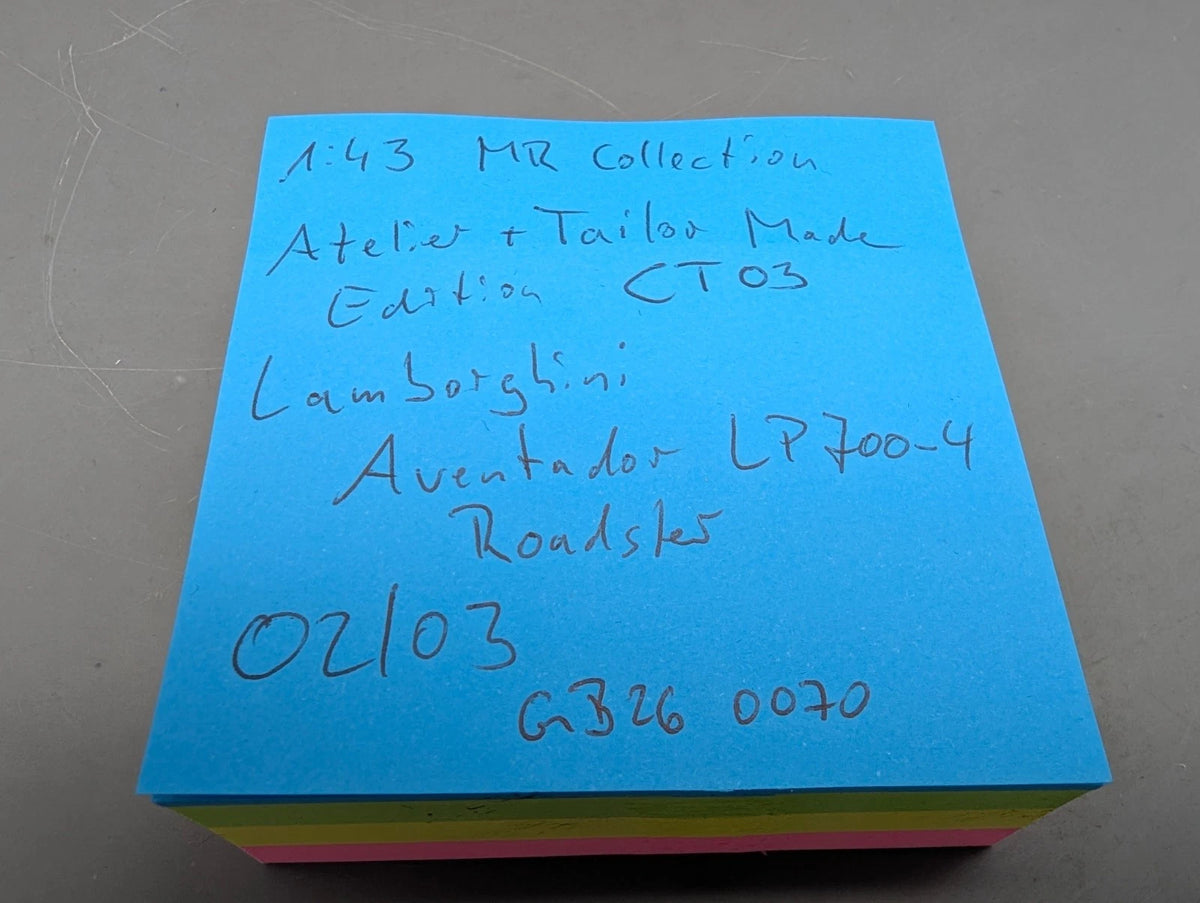 1:43 MR Collection
Atelier + Tailor Made
Edition CT03
Lamborghini
Aventador LP700-4
Roadster
02/03
GB26 0070